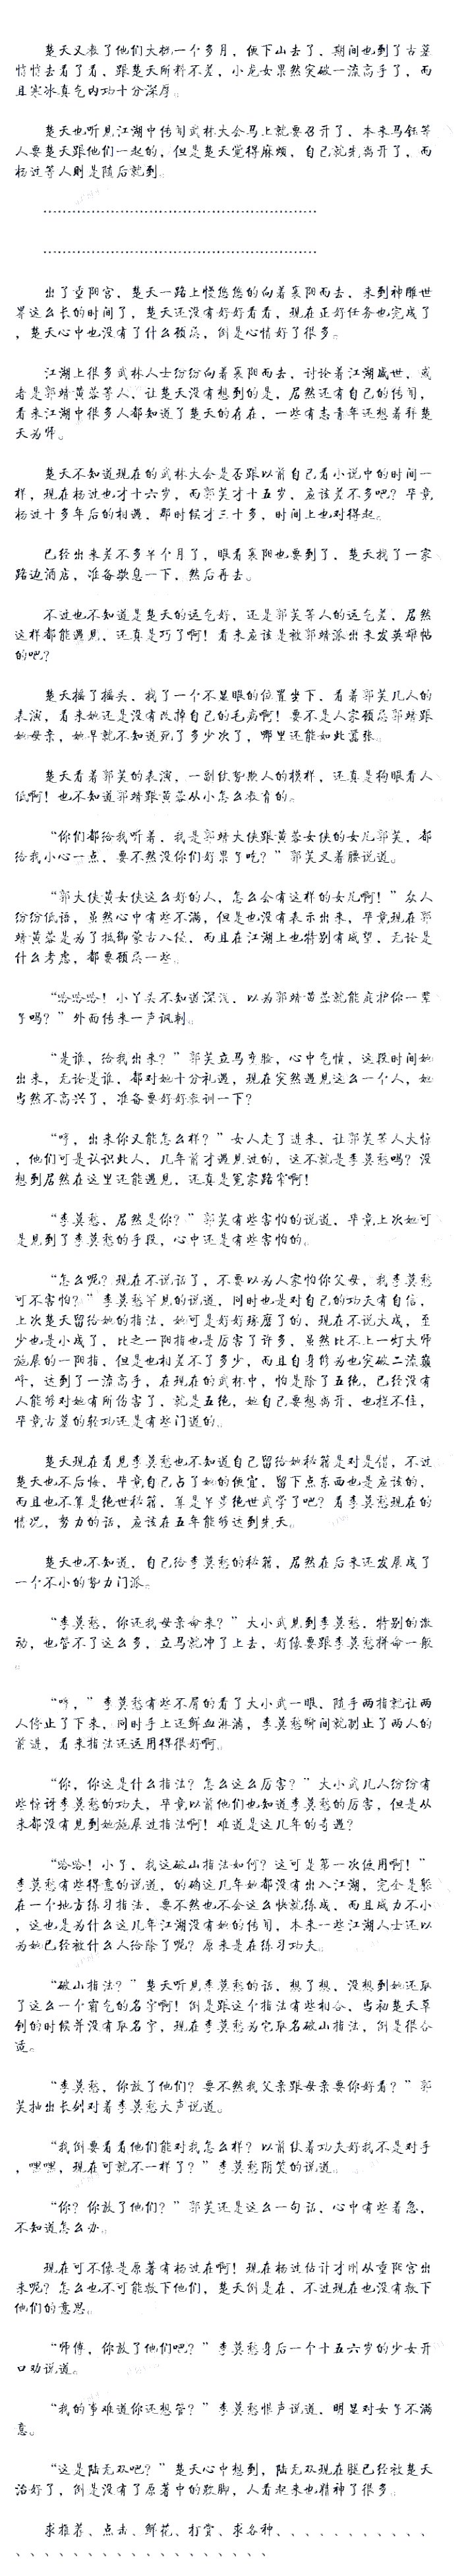 楚天又教了他们大概一个多月，便下山去了，期间也到了古墓
悄悄去看了看，跟楚天所料不差，小龙女果然突破一流高手了，而
且寒冰真气内功十分深厚。
楚天也听见江湖中传闻武林大会马上就要召开了，本来马钰等
人要楚天跟他们一起的，但是楚天觉得麻烦，自己就先离开了，而
杨过等人则是随后就到。
………………………………………………
………………………………………………
出了重阳宫，楚天一路上慢悠悠的向着襄阳而去，来到神雕世
界这么长的时间了，楚天还没有好好看看，现在正好任务也完成了
，楚天心中也没有了什么顾忌，倒是心情好了很多。
江湖上很多武林人士纷纷向着襄阳而去，讨论着江湖盛世，或
者是郭靖黄蓉等人，让楚天没有想到的是，居然还有自己的传闻，
看来江湖中很多人都知道了楚天的存在，一些有志青年还想着拜楚
天为师。
楚天不知道现在的武林大会是否跟以前自己看小说中的时间一
样，现在杨过也才十六岁，而郭芙才十五岁，应该差不多吧？毕竟
杨过十多年后的相遇，那时候才三十多，时间上也对得起。
已经出来差不多半个月了，眼看襄阳也要到了，楚天找了一家
路边酒店，准备歇息一下，然后再去。
不过也不知道是楚天的运气好，还是郭芙等人的运气差，居然
这样都能遇见，还真是巧了啊！看来应该是被郭靖派出来发英雄帖
的吧？
楚天摇了摇头，找了一个不显眼的位置坐下，看着郭芙几人的
表演，看来她还是没有改掉自己的毛病啊！要不是人家顾忌郭靖跟
她母亲，她早就不知道死了多少次了，哪里还能如此嚣张。
楚天看着郭芙的表演，一副仗势欺人的模样，还真是狗眼看人
低啊！也不知道郭靖跟黄蓉从小怎么教育的。
“你们都给我听着，我是郭靖大侠跟黄蓉女侠的女儿郭芙，都
给我小心一点，要不然没你们好果子吃？”郭芙叉着腰说道。
“郭大侠黄女侠这么好的人，怎么会有这样的女儿啊！”众人
纷纷低语，虽然心中有些不满，但是也没有表示出来，毕竟现在郭
靖黄蓉是为了抵御蒙古入侵，而且在江湖上也特别有威望，无论是
什么考虑，都要顾忌一些。
“咯咯咯！小丫头不知道深浅，以为郭靖黄蓉就能庇护你一辈
子吗？”外面传来一声讽刺。
“是谁，给我出来？”郭芙立马变脸，心中气愤，这段时间她
出来，无论是谁，都对她十分礼遇，现在突然遇见这么一个人，她
当然不高兴了，准备要好好教训一下？
“哼，出来你又能怎么样？”女人走了进来，让郭芙等人大惊
，他们可是认识此人，几年前才遇见过的，这不就是李莫愁吗？没
想到居然在这里还能遇见，还真是冤家路窄啊！
“李莫愁，居然是你？”郭芙有些害怕的说道，毕竟上次她可
是见到了李莫愁的手段，心中还是有些害怕的。
“怎么呢？现在不说话了，不要以为人家怕你父母，我李莫愁
可不害怕？”李莫愁罕见的说道，同时也是对自己的功夫有自信，
上次楚天留给她的指法，她可是好好琢磨了的，现在不说大成，至
少也是小成了，比之一阳指也是厉害了许多，虽然比不上一灯大师
施展的一阳指，但是也相差不了多少，而且自身修为也突破二流巅
峰，达到了一流高手，在现在的武林中，怕是除了五绝，已经没有
人能够对她有所伤害了，就是五绝，她自己要想离开，也拦不住，
毕竟古墓的轻功还是有些门道的。
楚天现在看见李莫愁也不知道自己留给她秘籍是对是错，不过
楚天也不后悔，毕竟自己占了她的便宜，留下点东西也是应该的，
而且也不算是绝世秘籍，算是半步绝世武学了吧？看李莫愁现在的
情况，努力的话，应该在五年能够达到先天。
楚天也不知道，自己给李莫愁的秘籍，居然在后来还发展成了
一个不小的势力门派。
“李莫愁，你还我母亲命来？”大小武见到李莫愁，特别的激
动，也管不了这么多，立马就冲了上去，好像要跟李莫愁拼命一般
。
“哼，”李莫愁有些不屑的看了大小武一眼，随手两指就让两
人停止了下来，同时手上还鲜血淋漓，李莫愁瞬间就制止了两人的
前进，看来指法还运用得很好啊。
“你，你这是什么指法？怎么这么厉害？”大小武几人纷纷有
些惊讶李莫愁的功夫，毕竟以前他们也知道李莫愁的厉害，但是从
来都没有见到她施展过指法啊！难道是这几年的奇遇？
“咯咯！小子，我这破山指法如何？这可是第一次使用啊！”
李莫愁有些得意的说道，的确这几年她都没有出入江湖，完全是躲
在一个地方练习指法，要不然也不会这么快就练成，而且威力不小
，这也是为什么这几年江湖没有她的传闻，本来一些江湖人士还以
为她已经被什么人给除了呢？原来是在练习功夫。
“破山指法？”楚天听见李莫愁的话，想了想，没想到她还取
了这么一个霸气的名字啊！倒是跟这个指法有些相合，当初楚天草
创的时候并没有取名字，现在李莫愁为它取名破山指法，倒是很合
适。
“李莫愁，你放了他们？要不然我父亲跟母亲要你好看？”郭
芙抽出长剑对着李莫愁大声说道。
“我倒要看看他们能对我怎么样？以前仗着功夫好我不是对手
，嘿嘿，现在可就不一样了？”李莫愁阴笑的说道。
“你？你放了他们？”郭芙还是这么一句话，心中有些着急，
不知道怎么办。
现在可不像是原著有杨过在啊！现在杨过估计才刚从重阳宫出
来呢？怎么也不可能救下他们，楚天倒是在，不过现在也没有救下
他们的意思。
“师傅，你放了他们吧？”李莫愁身后一个十五六岁的少女开
口劝说道。
“我的事难道你还想管？”李莫愁恨声说道，明显对女子不满
意。
“这是陆无双吧？”楚天心中想到，陆无双现在腿已经被楚天
治好了，倒是没有了原著中的跛脚，人看起来也精神了很多。
求推荐、点击、鲜花、打赏、求各种、、、、、、、、、、、
、、、、、、、、、、、、、、、、、、